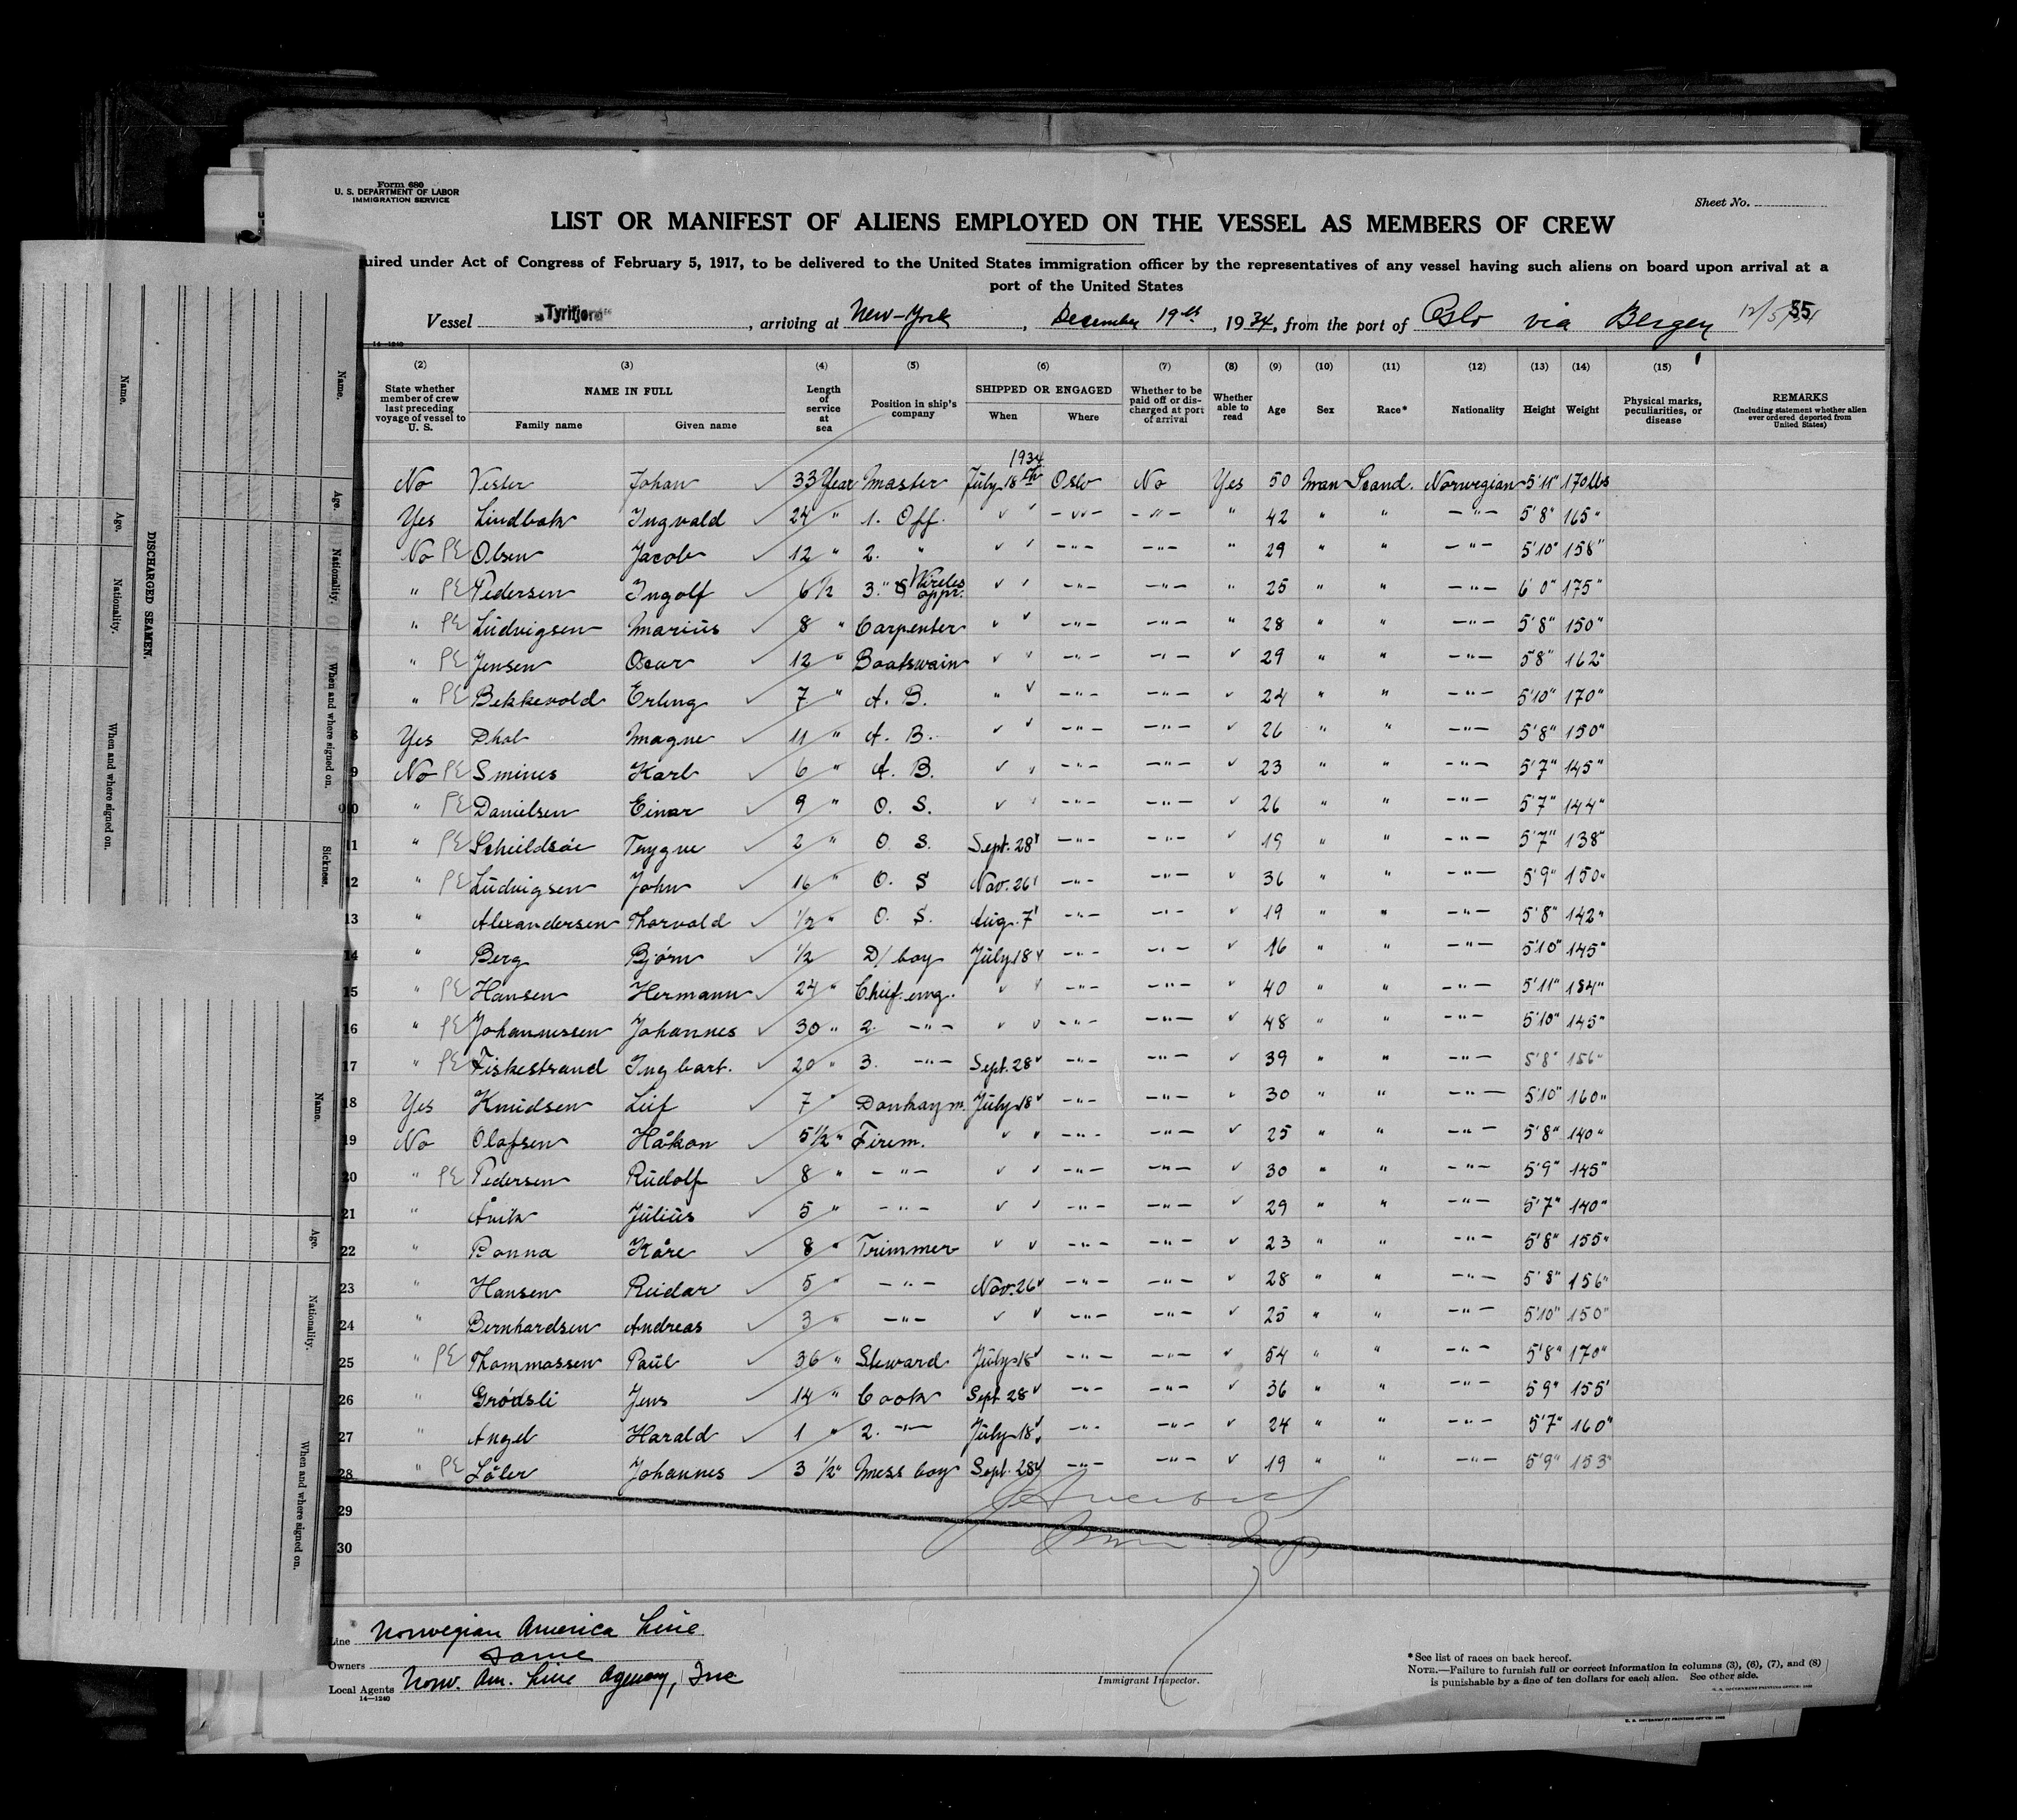 Form 680
U. S. DEPARTMENT OF LABOR
IMMIGRATION SERVICE
Sheet No.
LIST OR MANIFEST OF ALIENS EMPLOYED ON THE VESSEL AS MEMBERS OF CREW
uired under Act of Congress of February 5, 1917, to be delivered to the United States immigration officer by the representatives of any vessel having such aliens on board upon arrival at a
port of the United States
Vessel "Tyrifjord", arriving at New-York, December 19th, 1934, from the port of Oslo via Bergen
14—1240
(2) (3) (4) (5) (6) (7) (8) (9) (10) (11) (12) (13) (14) (15)
State whether member of crew last preceding voyage of vessel to U. S.
NAME IN FULL
Family name Given name
Length of service at sea
Position in ship's company
SHIPPED OR ENGAGED
When Where
Whether to be paid off or discharged at port of arrival
Whether able to read
Age Sex Race* Nationality Height Weight
Physical marks, peculiarities, or disease
REMARKS
(Including statement whether alien ever ordered deported from United States)
1934
No Vester Johan 33 Year Master July 18th Oslo No Yes 50 Man Scand. Norwegian 5'11" 170 lbs
Yes Lindbak Ingvald 24 " 1. Off. " " -"- -"- " 42 " " -"- 5'8" 165"
No PE Olsen Jacob 12 " 2. " " " -"- -"- " 29 " " -"- 5'10" 158"
" PE Pedersen Ingolf 6 1/2 3. " & Wireles oppr. " " -"- -"- " 25 " " -"- 6'0" 175"
" PE Ludvigsen Marius 8 " Carpenter " " -"- -"- " 28 " " -"- 5'8" 150"
" PE Jensen Oscar 12 " Boatswain " " -"- -"- " 29 " " -"- 5'8" 162"
7 " PE Bekkevold Erling 7 " A. B. " " -"- -"- " 24 " " -"- 5'10" 170"
8 Yes Dhal Magne 11 " A. B. " " -"- -"- " 26 " " -"- 5'8" 150"
9 No PE Smines Karl 6 " A. B. " " -"- -"- " 23 " " -"- 5'7" 145"
10 " PE Danielsen Einar 9 " O. S. " " -"- -"- " 26 " " -"- 5'7" 144"
11 " PE Trygve 2 " O. S. Sept. 28 " -"- -"- " 19 " " -"- 5'7" 138"
12 " PE Ludvigsen John 16 " O. S Nov. 26 " -"- -"- " 36 " " -"- 5'9" 150"
13 " Alexandersen Thorvald 1/2 " O. S. Aug. 7 " -"- -"- " 19 " " -"- 5'8" 142"
14 " Berg Bjørn 1/2 D/boy July 18 " -"- -"- " 16 " " -"- 5'10" 145"
15 " PE Hansen Hermann 24 " Chief. eng. " " -"- -"- " 40 " " -"- 5'11" 184"
16 " PE Johannessen Johannes 30 " 2. -"- " " -"- -"- " 48 " " -"- 5'10" 145"
17 " PE Fiskestrand Ingbart. 20 " 3. -"- Sept. 28 " -"- -"- " 39 " " -"- 5'8" 156"
18 Yes Knudsen Leif 7 " Donkay m. July 18 " -"- -"- " 30 " " -"- 5'10" 160"
19 No Olafsen Håkon 5 1/2 " Firem. " " -"- -"- " 25 " " -"- 5'8" 140"
20 " PE Pedersen Rudolf 8 " -"- " " -"- -"- " 30 " " -"- 5'9" 145"
21 " Julius 5 " -"- " " -"- -"- " 29 " " -"- 5'7" 140"
22 " Ronna Kåre 8 " Trimmer " " -"- -"- " 23 " " -"- 5'8" 155"
23 " Hansen Reidar 5 " -"- Nov. 26 " -"- -"- " 28 " " -"- 5'8" 156"
24 " Bernhardsen Andreas 3 " -"- " " -"- -"- " 25 " " -"- 5'10" 150"
25 " PE Thommassen Paul 36 " Steward July 18 " -"- -"- " 54 " " -"- 5'8" 170"
26 " Grødsli Jens 14 " Cook Sept 28 " -"- -"- " 36 " " -"- 5'9" 155"
27 " Angel Harald 1 " 2. -"- July 18 " -"- -"- " 24 " " -"- 5'7" 160"
28 " PE Låler Johannes 3 1/2 " Mess boy Sept. 28 " -"- -"- " 19 " " -"- 5'9" 153"
29
30
Line Norwegian America Line
Owners Same
Local Agents Norw. Am. Line Agency, Inc
14—1240
Immigrant Inspector.
*See list of races on back hereof.
NOTE.—Failure to furnish full or correct information in columns (3), (6), (7), and (8)
is punishable by a fine of ten dollars for each alien. See other side.
Name.
Age.
Nationality.
When and where signed on.
DISCHARGED SEAMEN.
Name.
Age.
Nationality.
When and where signed on.
Sickness.
Name.
Age.
Nationality.
When and where signed on.